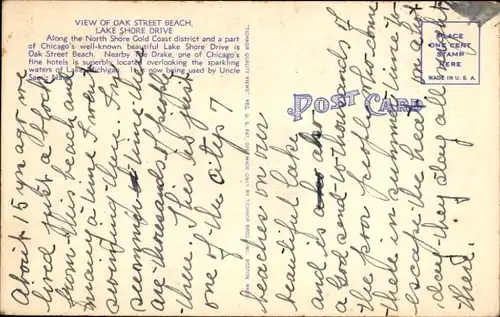 VIEW OF OAK STREET BEACH,
LAKE SHORE DRIVE
Along the North Shore Gold Coast district and a part
of Chicago's well-known beautiful Lake Shore Drive is
Oak Street Beach. Nearby The Drake, one of Chicago's
fine hotels is superbly located overlooking the sparkling
waters of Lake Michigan now being used by Uncle
Sam's
TICHNOR QUALITY VIEWS REG. U.S. PAT. OFF. MADE ONLY BY TICHNOR BROS., INC., BOSTON, MASS.
POST CARD
PLACE
ONE CENT
STAMP
HERE
MADE IN U.S.A.
About 15 yrs ago we
lived just a block
from this beach and
many a time I went
swimming there. In
summer time
are thousands of people
there. This is just
one of the city's 7
beaches on our
beautiful lake
and is also
a God send to thousands of
the poor people who come
there in summer time to
escape the heat on a hot
day - they stay all night
there.